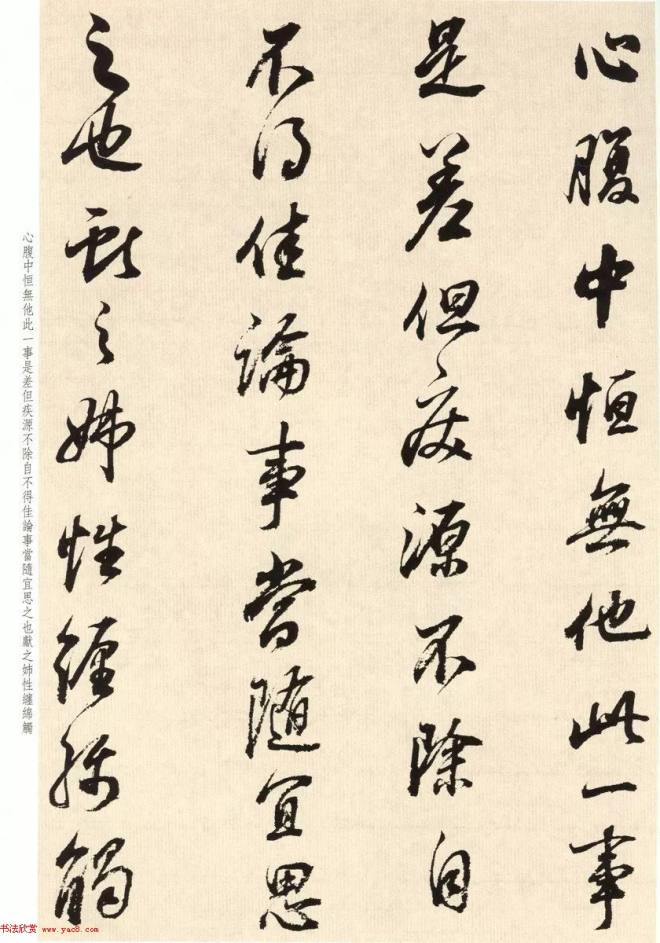 心腹中恒無他此一事
是差但疾源不除自
不得佳論事當隨宜思
之也獻之姊性纏綿觸
心腹中恒無他此一事是差但疾源不除自不得佳論事當隨宜思之也獻之姊性纏綿觸
书法欣赏 www.yac8.com